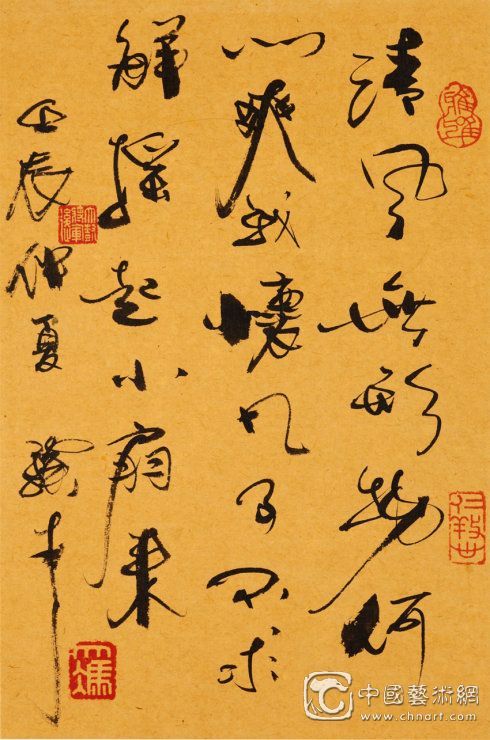 清風無形物何
以爽我懷凡子不求
解摇起小扇来
壬辰仲夏
中國藝術網
www.chnart.com